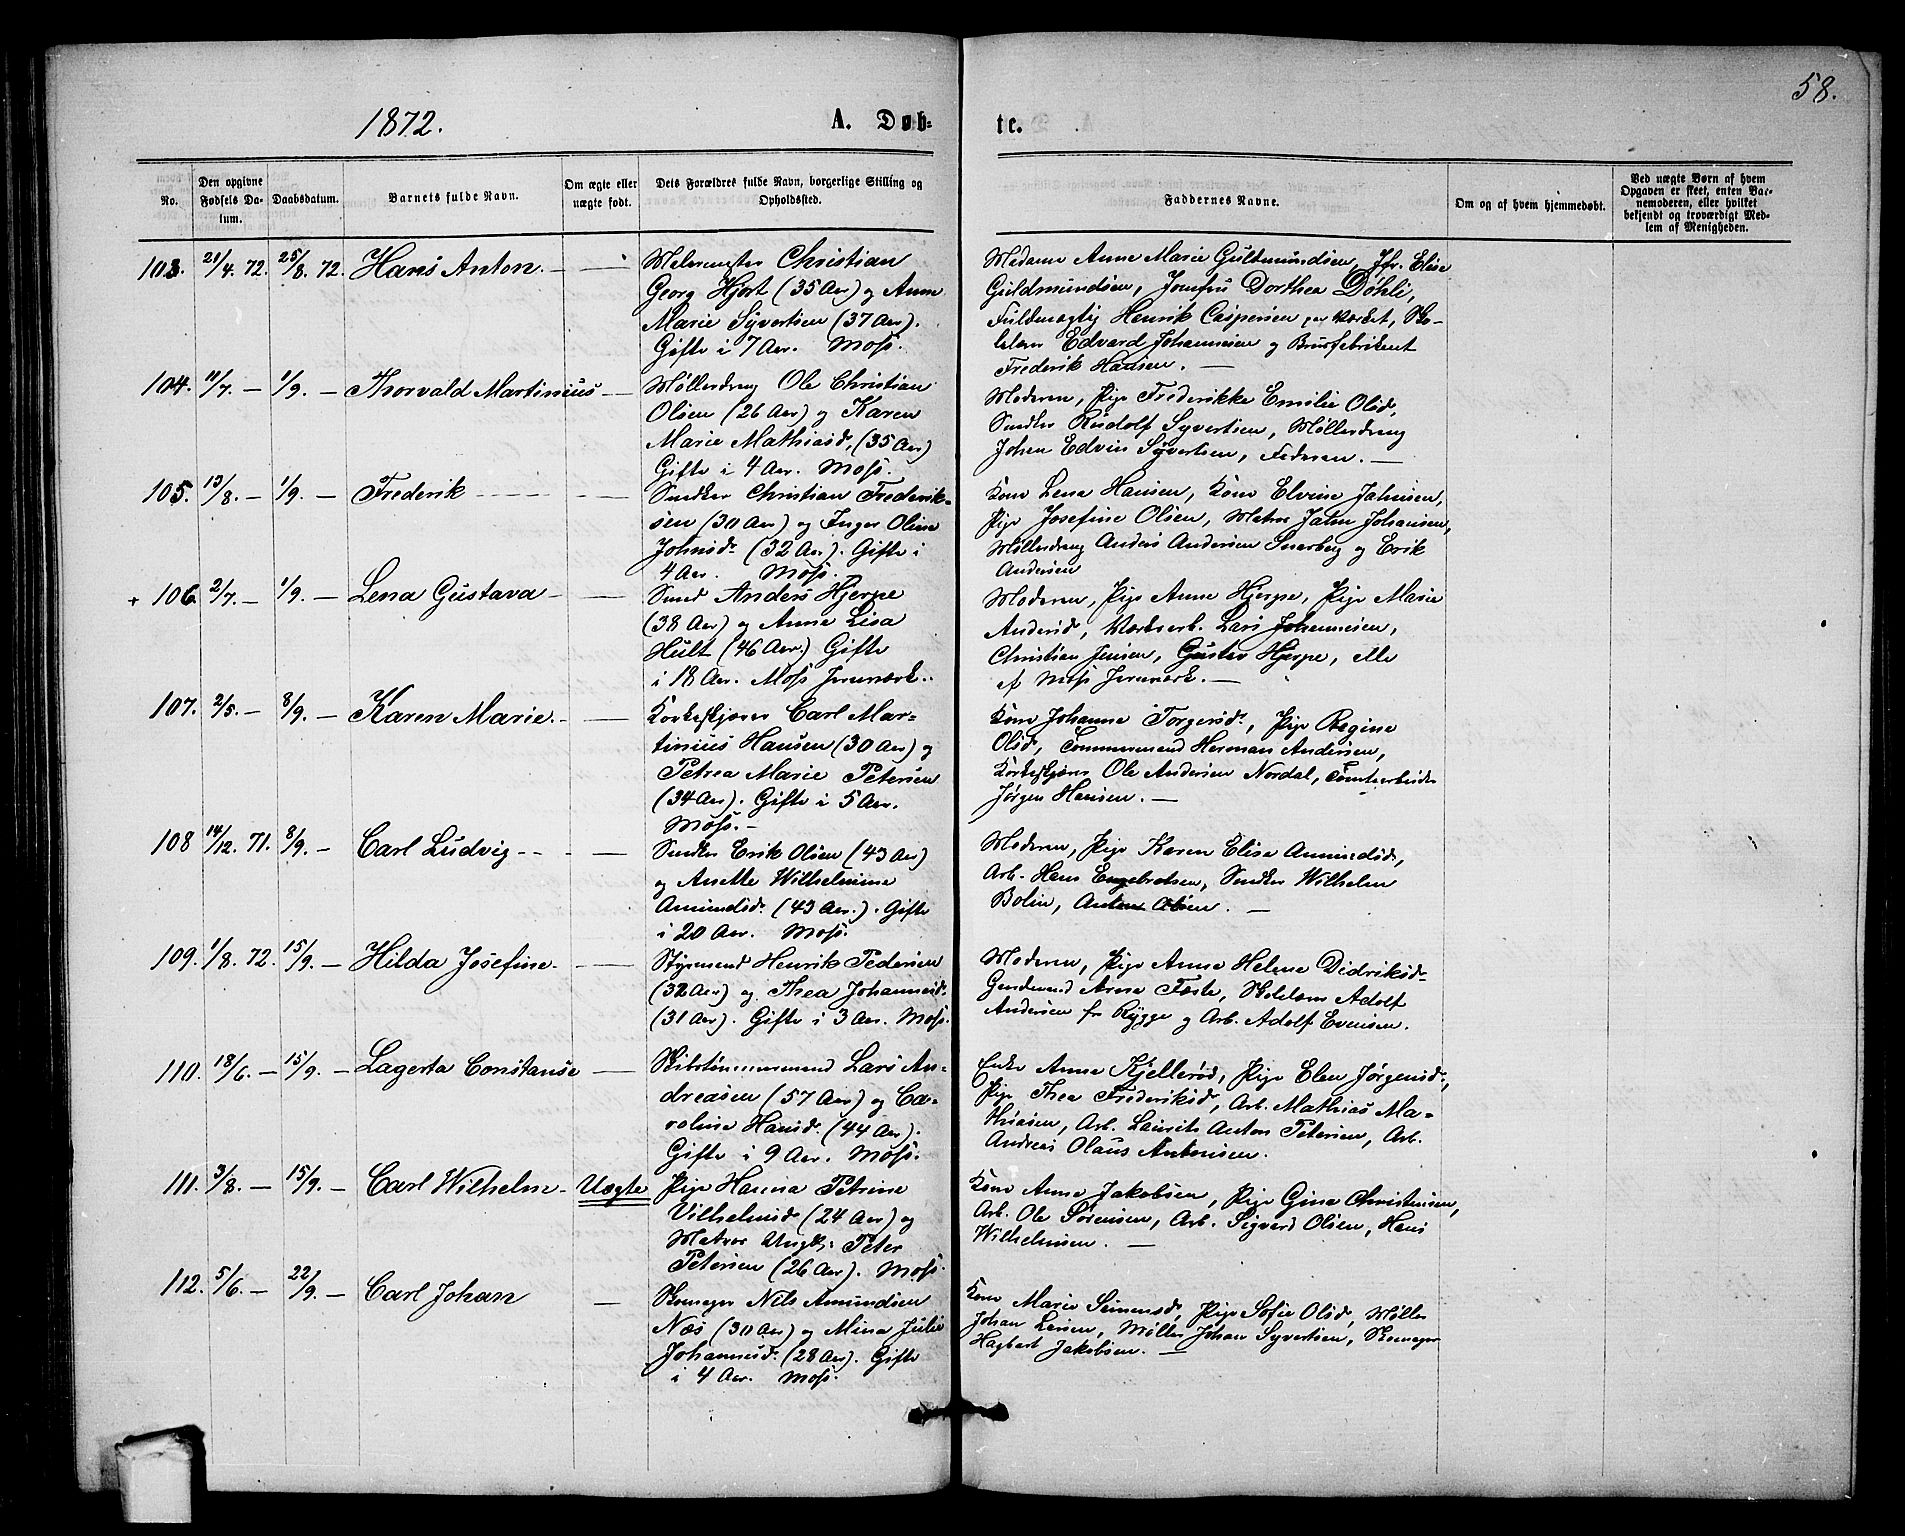 58.
1872.
A. Døb-
te.
No.
Den opgivne
Fødsels Da-
tum.
Daabsdatum.
Barnets fulde Navn.
Om ægte eller
uægte født.
Dets Forældres fulde Navn, borgerlige Stilling og
Opholdssted.
Faddernes Navne.
Om og af hvem hjemmedøbt.
Ved uægte Børn af hvem
Opgaven er skeet, enten Bar-
nemoderen, eller hvilket
bekjendt og troværdigt Med-
lem af Menigheden.
103. 21/4. 72. 25/8. 72. Hans Anton. — —
Malermester Christian
Georg Hjort (35 Aar) og Anne
Marie Syvertsen (37 Aar).
Gifte i 7 Aar. Moss.
Madame Anne Marie Guldmundsen, Jfr. Elise
Guldmundsen, Jomfru Dorthea Døhli,
Fuldmægtig Henrik Caspersen paa Værket, Sko-
lelærer Edvard Johannesen og Brusfabrikant
Frederik Hansen. —
104. 11/7. — 1/9. — Thorvald Martinius — —
Møllerdreng Ole Christian
Olsen (26 Aar) og Karen
Marie Mathiasd. (35 Aar)
Gifte i 4 Aar. Moss.
Moderen, Pige Frederikke Emilie Olsd,
Snedker Rudolf Syvertsen, Møllerdreng
Johan Edvin Syvertsen, Faderen. —
105. 13/8. — 1/9. — Frederik — —
Snedker Christian Frederik-
sen (30 Aar) og Inger Oline
Johnsd. (32 Aar). Gifte i
4 Aar. Moss.
Kone Lena Hansen, Kone Elvine Jahnsen,
Pige Josefine Olsen, Matros John Johansen,
Møllerdreng Anders Andersen Snarberg og Erik
Andersen
+ 106. 2/7. — 1/9. — Lena Gustava — —
Smed Anders Hjerpe
(38 Aar) og Anna Lisa
Hult (46 Aar.) Gifte
i 18 Aar. Moss Jernværk.
Moderen, Pige Anne Hjerpe, Pige Marie
Andersd, Værksarb. Lars Johannesen,
Christian Jensen, Gustav Hjerpe, alle
af Moss Jernværk. —
107. 2/5. — 8/9. — Karen Marie. — —
Korkeskjærer Carl Mar-
tinius Hansen (30 Aar) og
Petrea Marie Petersen
(34 Aar). Gifte i 5 Aar.
Moss. —
Kone Johanne Torgersd., Pige Regine
Olsd, Tømmermand Herman Andersen,
Korkeskjærer Ole Andersen Nordal, Tomtearbeider
Jørgen Hansen. —
108 14/12. 71. 8/9. — Carl Ludvig — —
Snedker Erik Olsen (43 Aar)
og Anette Wilhelmine
Amundsd. (43 Aar.). Gifte
i 20 Aar. Moss.
Moderen, Pige Karen Elise Amundsd,
Arb. Hans Engebretsen, Snedker Wilhelm
Bolin, Anton Olsen. —
109. 1/8. 72. 15/9. — Hilda Josefine — —
Styrmand Henrik Pedersen
(32 Aar) og Thea Johannesd.
(31 Aar). Gifte i 3 Aar. Moss.
Moderen, Pige Anne Helene Didriksd-
Gaardmand Arne Faste, Skolelærer Adolf
Andersen fra Rygge og Arb. Adolf Evensen.
110. 18/6. — 15/9. — Lagerta Constanse —
Skibstømmermand Lars An-
dreasen (57 Aar) og Ca-
roline Hansd. (44 Aar).
Gifte i 9 Aar. Moss.
Enke Anne Kjellerød, Pige Elen Jørgensd.,
Pige Thea Frederiksd, Arb. Mathias Ma-
thiasen, Arb. Laurits Anton Petersen, Arb.
Andreas Olaus Antonisen.
111. 3/8. — 15/9. — Carl Wilhelm — Uægte
Pige Hanna Petrine
Vilhelmsd (24 Aar) og
Matros Ungk. Peter
Petersen (26 Aar). Moss.
Kone Anne Jakobsen, Pige Gina Christensen,
Arb. Ole Sørensen, Arb. Sigvard Olsen, Hans
Wilhelmsen. —
112. 5/6. — 22/9. — Carl Johan —
Skomager Nils Amundsen
Næs (30 Aar) og Mina Julie
Johannesd. (28 Aar). Gifte
i 4 Aar. Moss.
Kone Marie Simensd, Pige Sofie Olsd, Møller
Johan Larsen, Møller Johan Syvertsen, Skomager
Hagbart Jakobsen. —